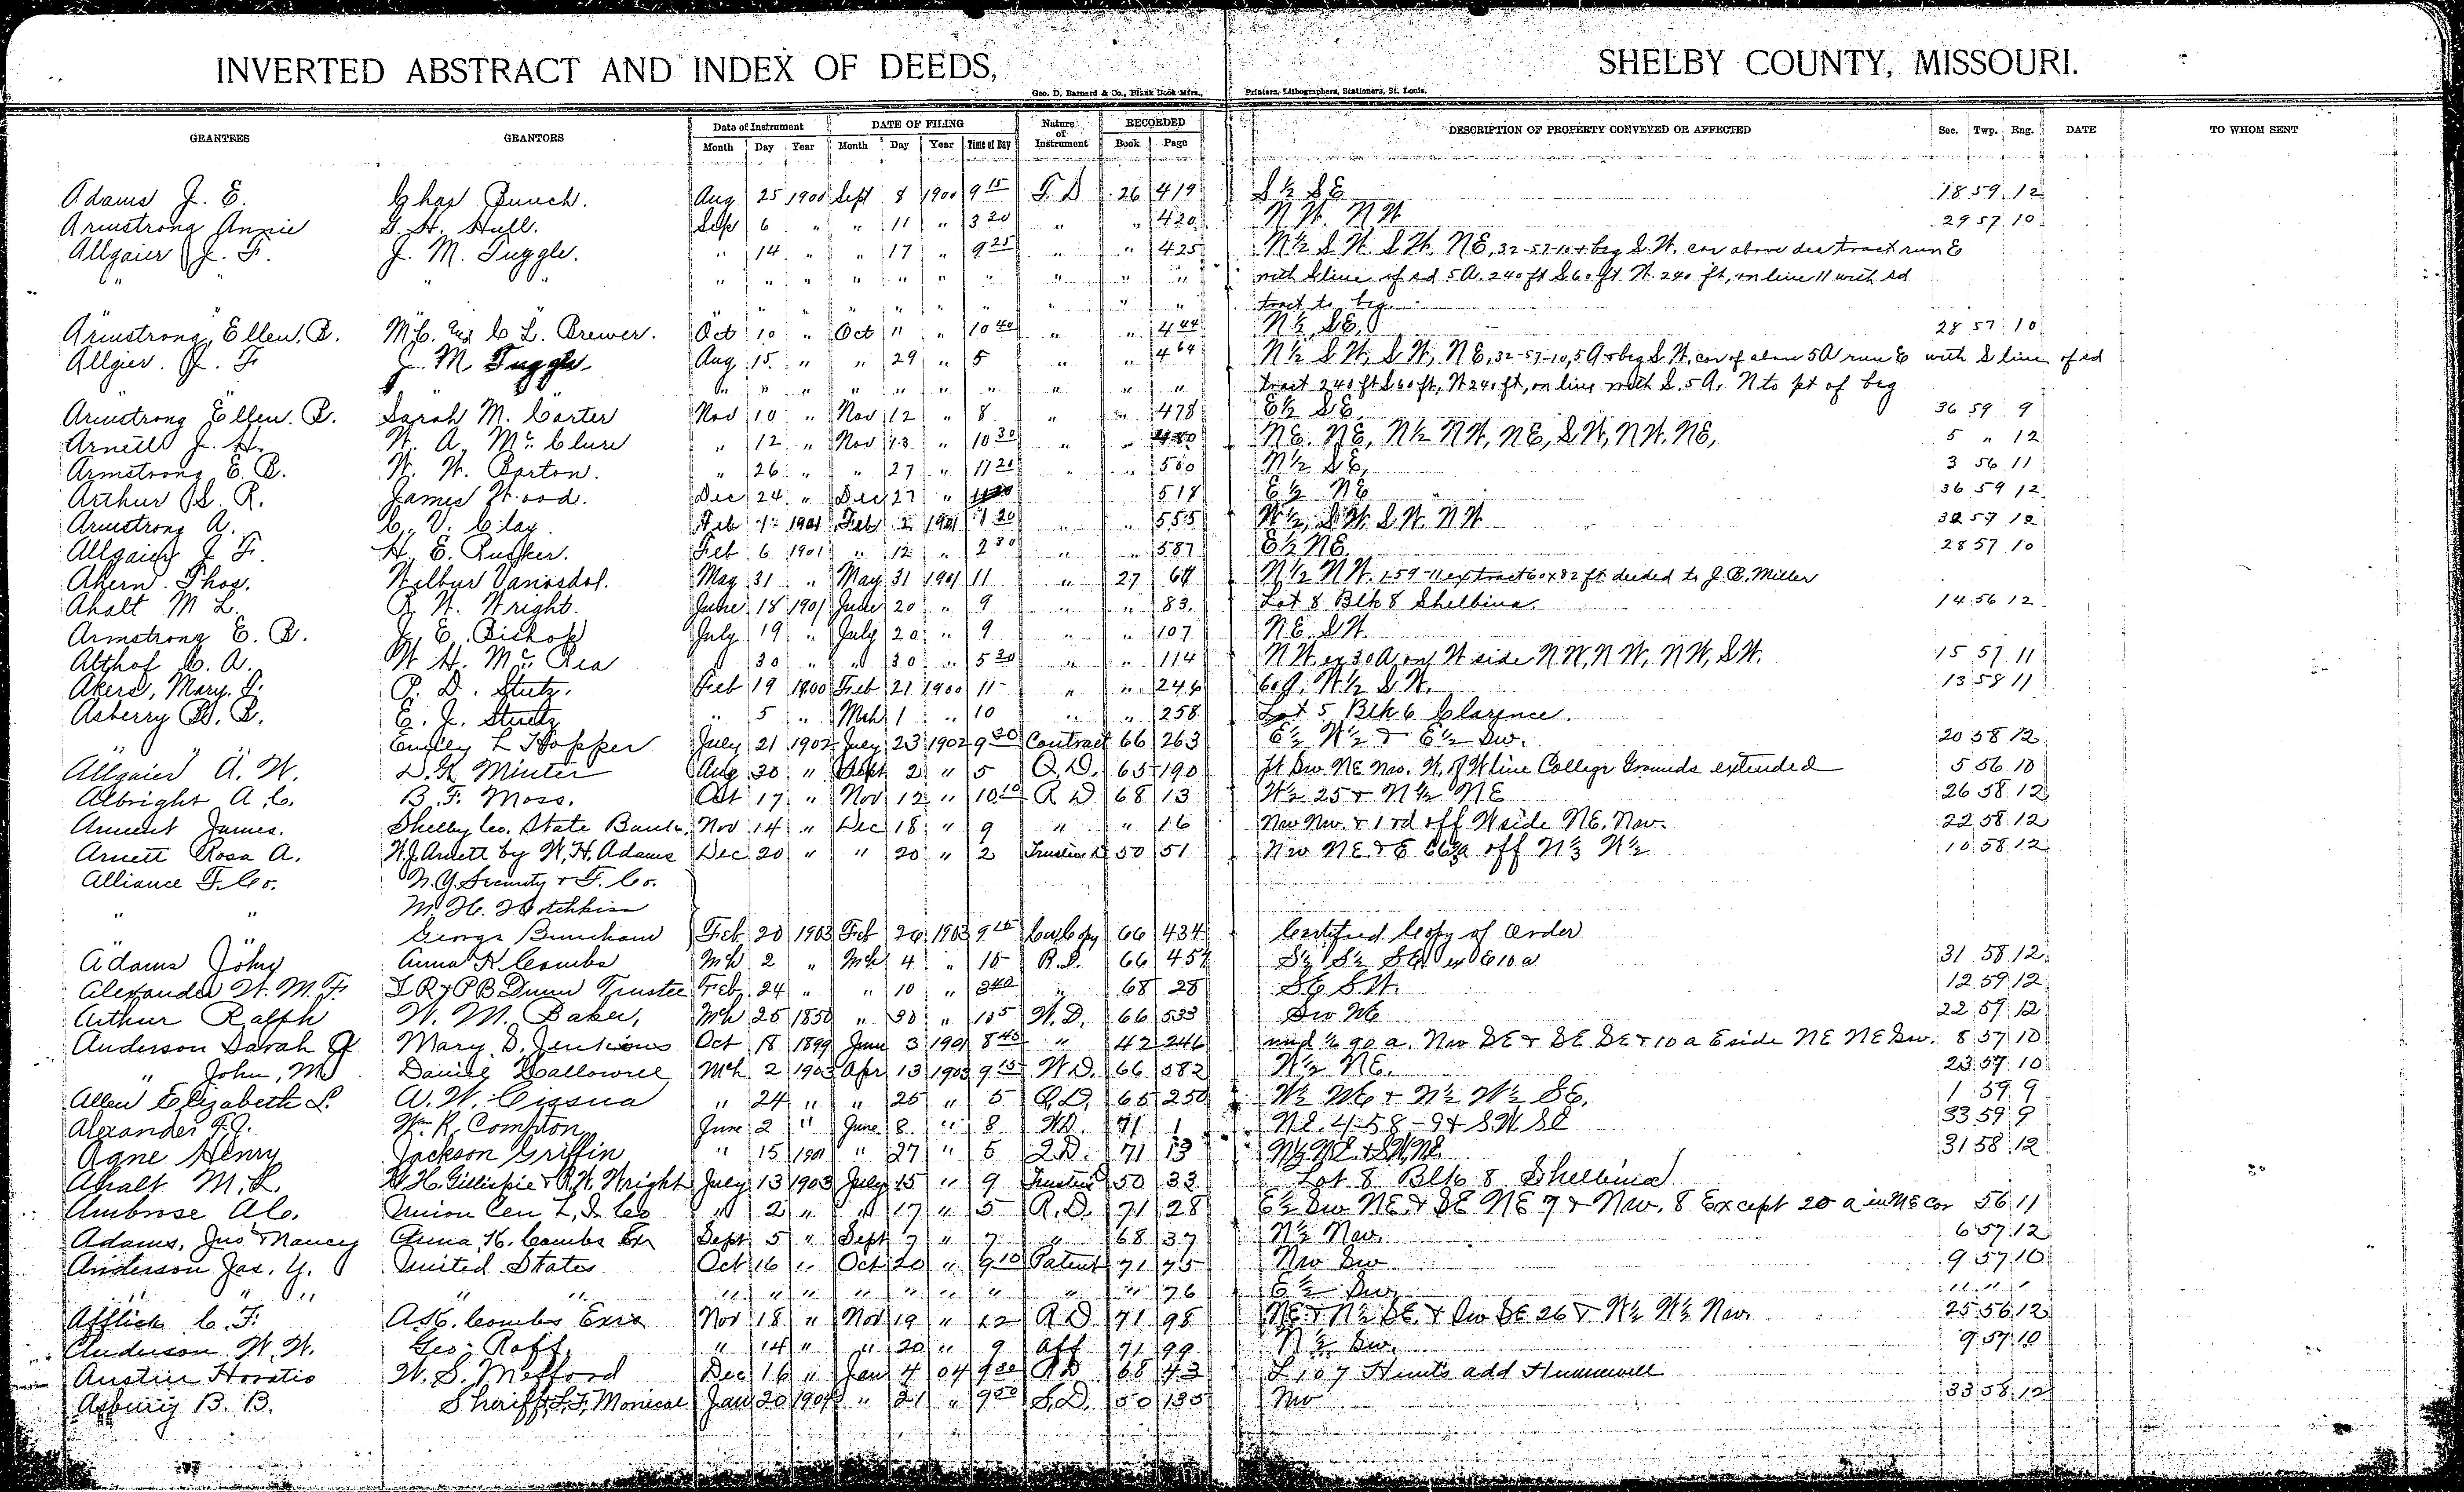 INVERTED ABSTRACT AND INDEX OF DEEDS, SHELBY COUNTY, MISSOURI.
Geo. D. Barnard & Co., Blank Book Mfrs., Printers, Lithographers, Stationers, St. Louis.
GRANTEES GRANTORS Date of Instrument DATE OF FILING Nature of Instrument RECORDED DESCRIPTION OF PROPERTY CONVEYED OR AFFECTED Sec. Twp. Rng. DATE TO WHOM SENT
Month Day Year Month Day Year Time of Day Book Page
Adams J. E. Chas Bunch. Aug 25 1900 Sept 8 1900 9 15 T. D 26 419 S ½ SE 18 59 12
Armstrong Annie G. H. Hull. Sep 6 " " 11 " 3 20 " " 420 N W. N W 29 57 10
Allgaier J. F. J. M. Tuggle. " 14 " " 17 " 9 25 " " 425 N ½ S W. S W. NE, 32-57-10 & beg S. W. cor above des tract run E
" " " " " " " " " " " " " " with S line of sd 5 A. 240 ft S 60 ft W. 240 ft, on line 11 with sd
" " " " " " " " " " tract to beg.
Armstrong, Ellen. B. M C. C. L. Brewer. Oct 10 " Oct 11 " 10 40 " " 444 N ½ SE, 28 57 10
Allgier. J. F J. M. Tuggle. Aug 15 " " 29 " 5 " " 464 N ½ S W, S W, NE, 32-57-10, 5 A & beg S W, cor of above 5 A run E with S line of sd
" " " " " " " " " " tract 240 ft S 60 ft, W 240 ft, on line with S. 5 A, N to pt of beg
Armstrong Ellen. B. Sarah M. Carter Nov 10 " Nov 12 " 8 " " 478 E ½ SE 36 59 9
Arnett J. H. W. A. Mc Clure " 12 " Nov 13 " 10 30 " " NE. NE, N ½ N W, NE, S W, N W. NE, 5 " 12
Armstrong E. B. W. W. Barton. " 26 " " 27 " 11 20 " " 500 N ½ SE, 3 56 11
Arthur S. R. James Wood. Dec 24 " Dec 27 " 518 E ½ NE 36 59 12
Armstrong A. C. V. Clay Feb 1 1901 Feb 2 1901 1 20 " " 555 W ½, S W. S W. N W 32 57 10
Allgaier J F. H. E. Rusker. Feb 6 1901 " 12 " 2 30 " " 587 E ½ NE. 28 57 10
Ahern. Thos. Wilbur Vanosdol. May 31 " May 31 1901 11 " 27 64 N ½ N W. 1-59-11 ex tract 60 x 82 ft deeded to J. B. Miller
Ahalt M L. R. W. Wright. June 18 1901 June 20 " 9 " " 83. Lot 8 Blk 8 Shelbina. 14 56 12
Armstrong E. B. J. E. Bishop July 19 " July 20 " 9 " " 107 NE. S W.
Althof C. A. W. H. Mc Rea " 30 " " 30 " 5 30 " " 114 N W ex 30 A on W side N W, N W, N W, S W. 15 57 11
Akers, Mary. J. P. D. Stutz. Feb 19 1900 Feb 21 1900 11 " " 246 W ½ S W. 13 58 11
Asberry B. B. E. J. Stutz " 5 " Mch 1 " 10 " " 258 Lot 5 Blk 6 Clarence.
" " Emily L Hopper July 21 1902 July 23 1902 9 20 Contract 66 263 E ½ W ½ & E ½ Sw. 20 58 12
Allgaier A. W. D. G. Minter Aug 30 " Sept 2 " 5 Q. D. 65 190 pt Sw NE Nw. W. of W line College Grounds extended 5 56 10
Albright A. C. B. F. Moss. Oct 17 " Nov 12 " 10 10 R D 68 13 W ½ 25 & N ½ NE 26 58 12
Ament James. Shelby Co. State Bank, Nov 14 " Dec 18 " 9 " " 16 Nw Nw. & 1 rd off W side NE. Nw. 22 58 12
Arnett Rosa A. W. J. Arnett by W. H. Adams Dec 20 " " 20 " 2 Trustees D 50 51 Nw NE & E off N ½ W ½ 10 58 12
Alliance T. Co. N. Y. Security & T. Co.
" " M. H. Hotchkiss
" George Burnham Feb 20 1903 Feb 26 1903 9 15 Cer Copy 66 434 Certified Copy of Order
Adams John Anna K Combs Mch 2 " Mch 4 " 10 R. D. 66 457 S ½ S ½ SE ex E 10 a 31 58 12
Alexander W. M. F. T R & P B Dunn Trustee Feb 24 " " 10 " 3 40 " 68 28 SE S. W. 12 59 12
Arthur Ralph W. M. Baker, Mch 25 1850 " 30 " W. D. 66 533 Sw NE 22 59 12
Anderson Sarah J Mary D. Jenkins Oct 18 1899 June 3 1901 8 45 " 42 246 und ½ 90 a. Nw SE & SE SE & 10 a E side NE NE Sw. 8 57 10
" John, M Daniel Hallowell Mch 2 1903 Apr 13 1903 9 15 W D. 66 582 W ½ NE. 23 57 10
Allen Elizabeth L. A. W. Cissna " 24 " " 25 " 5 Q. D. 65 250 W ½ NE & N ½ W ½ SE. 1 59 9
Alexander F. J. Wm R. Compton June 2 " June 8 " 8 W D. 71 1 NE. 4-58-9 & S. W SE 33 59 9
Agne Henry Jackson Griffin " 15 1901 " 27 " 5 Q. D. 71 13 31 58 12
Ahalt M. L. W. H. Gillispie & R. W. Wright July 13 1903 July 15 " 9 Trustees D 50 33 Lot 8 Blk 8 Shelbina
Ambrose A C. Union Cen L, I. Co " 2 " " 17 " 5 R. D. 71 28 E ½ Sw NE & SE NE 7 & Nw. 8 Except 20 a in NE cor 56 11
Adams, Jno & Nancy Anna K. Combs Ex Sept 5 " Sept 7 " 7 " 68 37 N ½ Nw. 6 57 12
Anderson Jas. Y. United States Oct 16 " Oct 20 " 9 10 Patent 71 75 Nw Sw 9 57 10
" " " " " " " " " " " " " 76 E ½ Sw " " "
Afflick C. F. A. K. Combs Exrx Nov 18 " Nov 19 " 12 R D 71 98 NE & N ½ SE & Sw SE 26 & W ½ W ½ Nw. 25 56 12
Anderson W. W. Geo. Raff. " 14 " " 20 " 9 Aff 71 99 N ½ Sw. 9 57 10
Austin Horatio W. S. Mefford Dec 16 " Jan 4 04 9 20 R D 68 43 L 10 7 Hunts add Hunnewell
Asbury B. B. Sheriff, L. F. Monical Jan 20 1904 " 21 " 9 00 S. D. 50 135 Nw 33 58 12